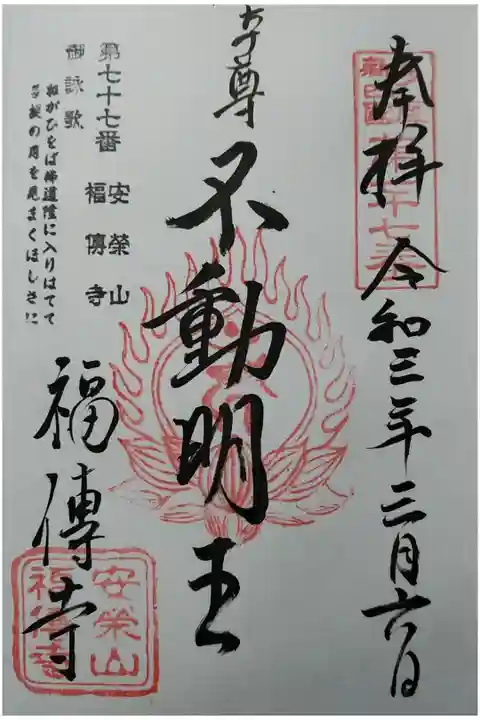 奉拝 令和三年三月六日
本尊 不動明王
第七十七番 安榮山 福傳寺
御詠歌
ねがひをば佛道陰に入りはてて
菩提の月を見まくほしさに
福傳寺
安榮山
福傳寺